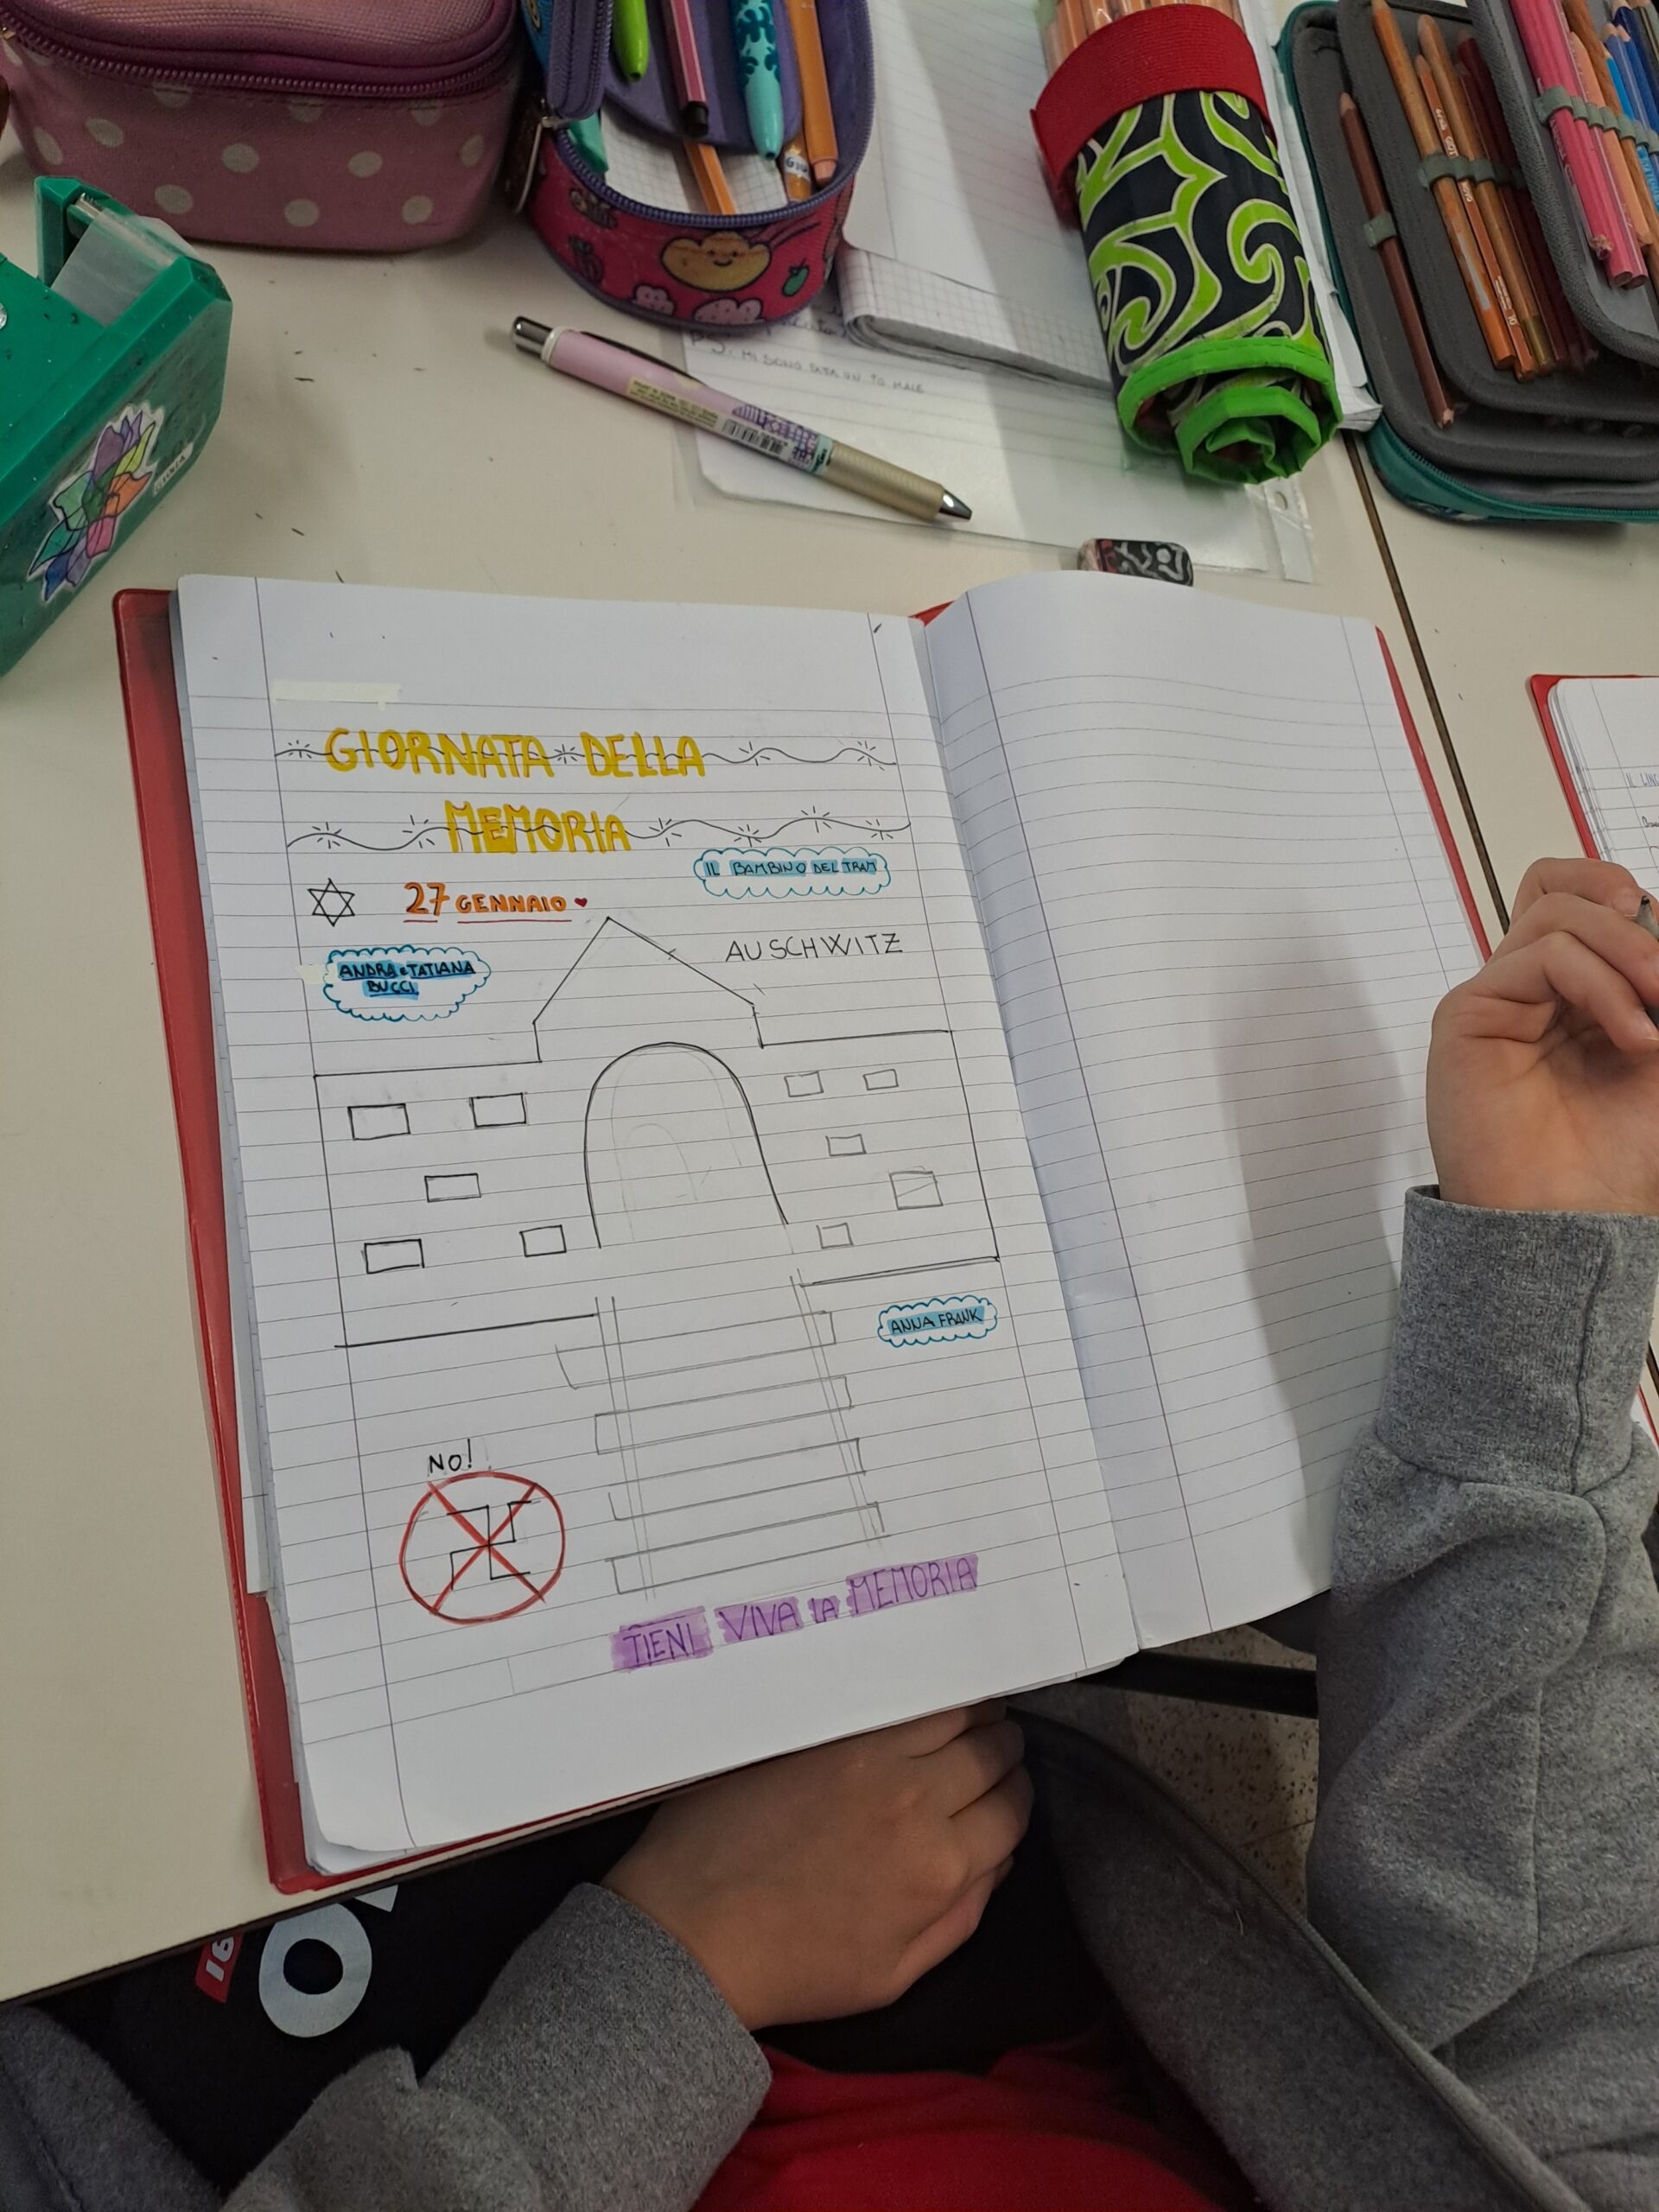 P.S. MI SONO FATTA UN PO MALE
GIORNATA DELLA
MEMORIA
IL BAMBINO DEL TRAM
27 GENNAIO
AUSCHWITZ
ANDRA e TATIANA
BUCCI
ANNA FRANK
NO!
TIENI VIVA LA MEMORIA